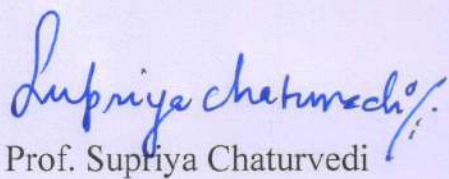 Supriya Chaturvedi
Prof. Supriya Chaturvedi